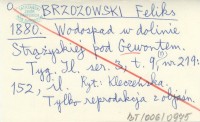 BRZOZOWSKI Feliks
1880. Wodospad w dolinie
Strążyskiej pod Gewontem.
— Tyg. Il. ser. 3, t. 9, nr 219:
152, il. Ryt. Kleczeńska.
Tylko reprodukcja z objaśn.
DT/006/0945